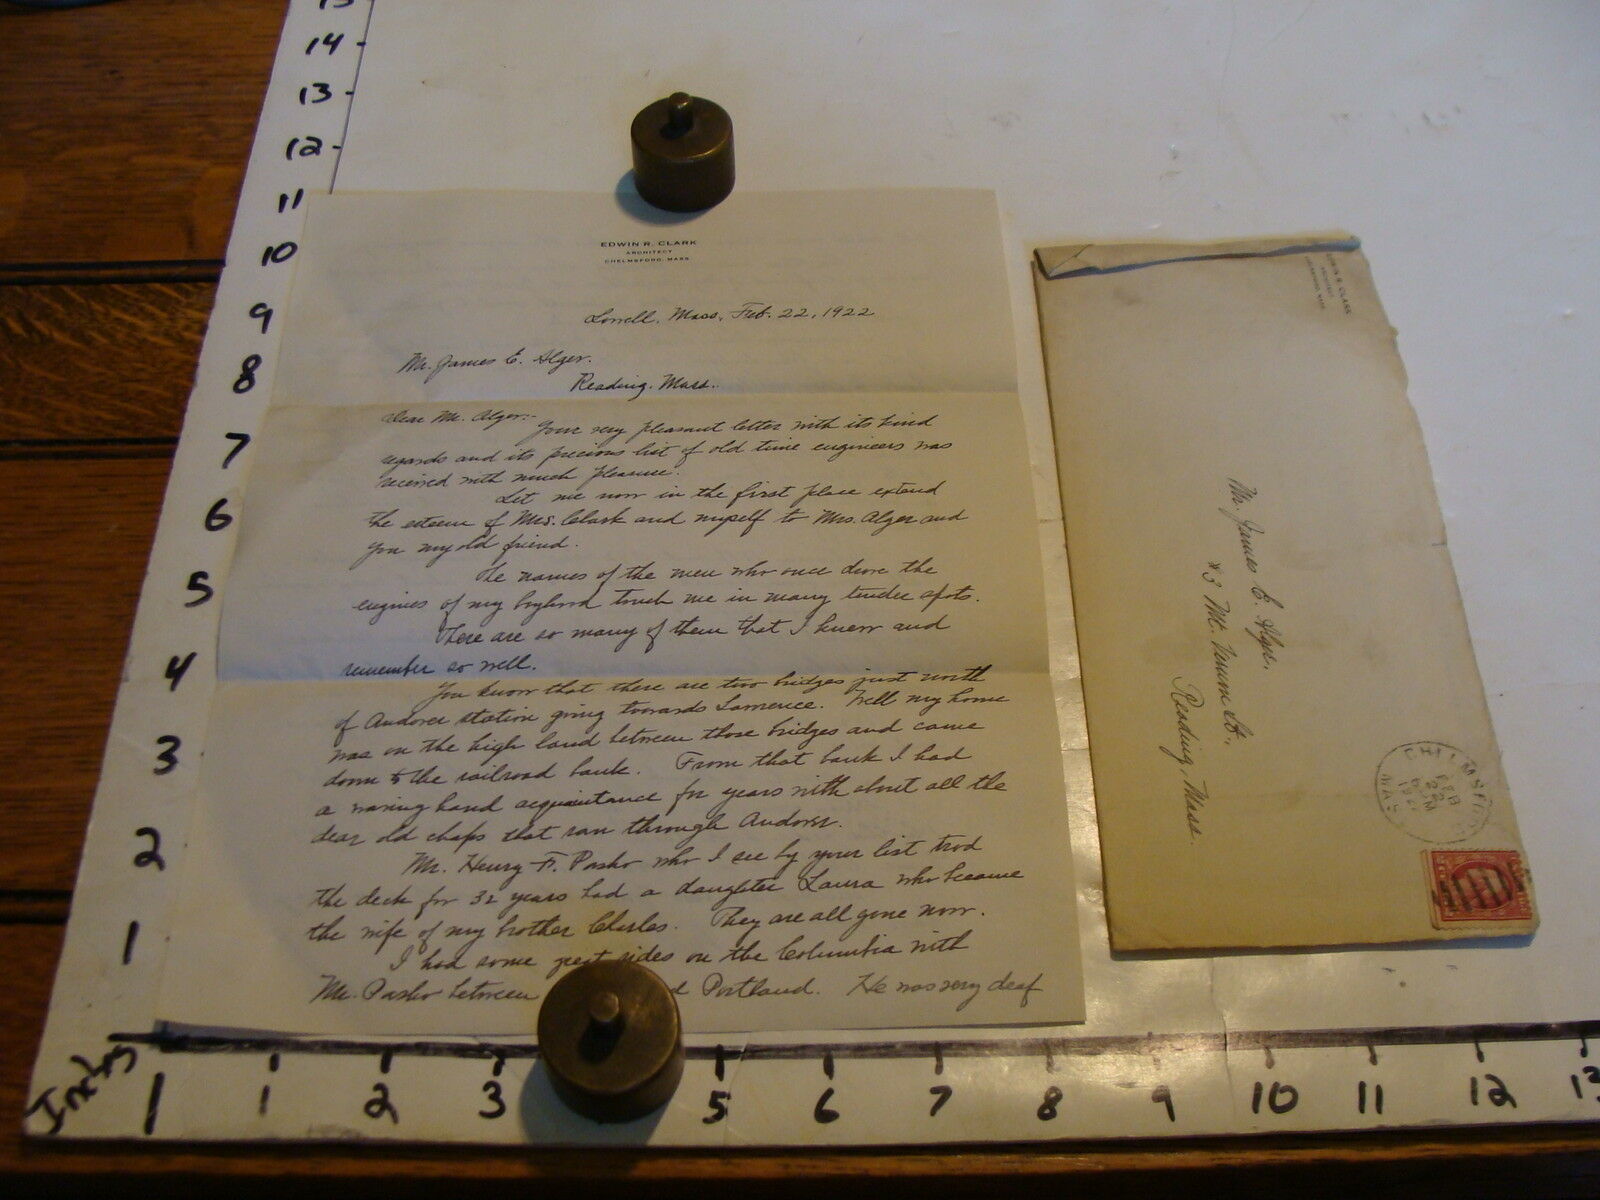 15
14
13
12
11
10
9
8
7
6
5
4
3
2
1
Inches
1
2
3
5
6
7
8
9
10
11
12
13
EDWIN R. CLARK
ARCHITECT
CHELMSFORD, MASS
Lowell, Mass, Feb. 22, 1922
Mr. James E. Alger.
Reading, Mass.
Dear Mr. Alger:-
Your very pleasant letter with its kind
regards and its precious list of old time engineers was
received with much pleasure.
Let me now in the first place extend
the esteem of Mrs. Clark and myself to Mrs. Alger and
you my old friend.
The names of the men who once drove the
engines of my boyhood touch me in many tender spots.
There are so many of them that I knew and
remember so well.
You know that there are two bridges just north
of Andover station going towards Lawrence. Well my home
was on the high land between those bridges and came
down to the railroad bank. From that bank I had
a waving hand acquaintance for years with about all the
dear old chaps that ran through Andover.
Mr. Henry F. Pasho who I see by your list trod
the deck for 32 years had a daughter Laura who became
the wife of my brother Charles. They are all gone now.
I had some great rides on the Columbia with
Mr. Pasho between d Portland. He was very deaf
EDWIN R. CLARK
ARCHITECT
CHELMSFORD, MASS
Mr. James E. Alger.
#3 Mt. Vernon St.,
Reading, Mass.
CHELMSFORD
FEB
22
6 PM
MASS